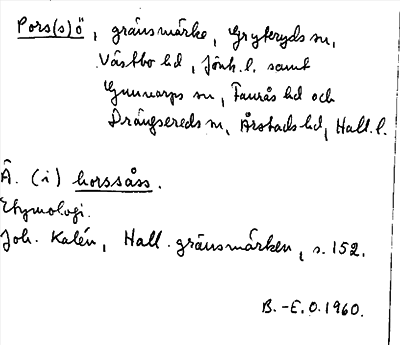 Pors(s)ö, gränsmärke, Gryteryds sn,
Västbo hd, Jönk. l. samt
Gunnarps sn, Faurås hd och
Drängsereds sn, Årstads hd, Hall. l.
Ä. (i) horssåss.
Etymologi.
Joh. Kalén, Hall. gränsmärken, s. 152.
B.-E.O. 1960.